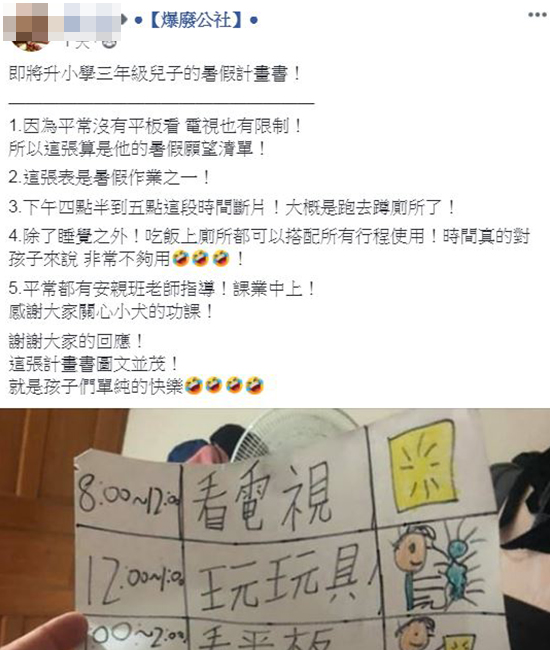 ●【爆廢公社】●
1天
即將升小學三年級兒子的暑假計畫書！
1.因為平常沒有平板看 電視也有限制！
所以這張算是他的暑假願望清單！
2.這張表是暑假作業之一！
3.下午四點半到五點這段時間斷片！大概是跑去蹲廁所了！
4.除了睡覺之外！吃飯上廁所都可以搭配所有行程使用！時間真的對
孩子來說 非常不夠用🤣🤣🤣！
5.平常都有安親班老師指導！課業中上！
感謝大家關心小犬的功課！
謝謝大家的回應！
這張計畫書圖文並茂！
就是孩子們單純的快樂🤣🤣🤣🤣
8:00~12:00
看電視
12:00~1:00
玩玩具
00~2:00
看平板